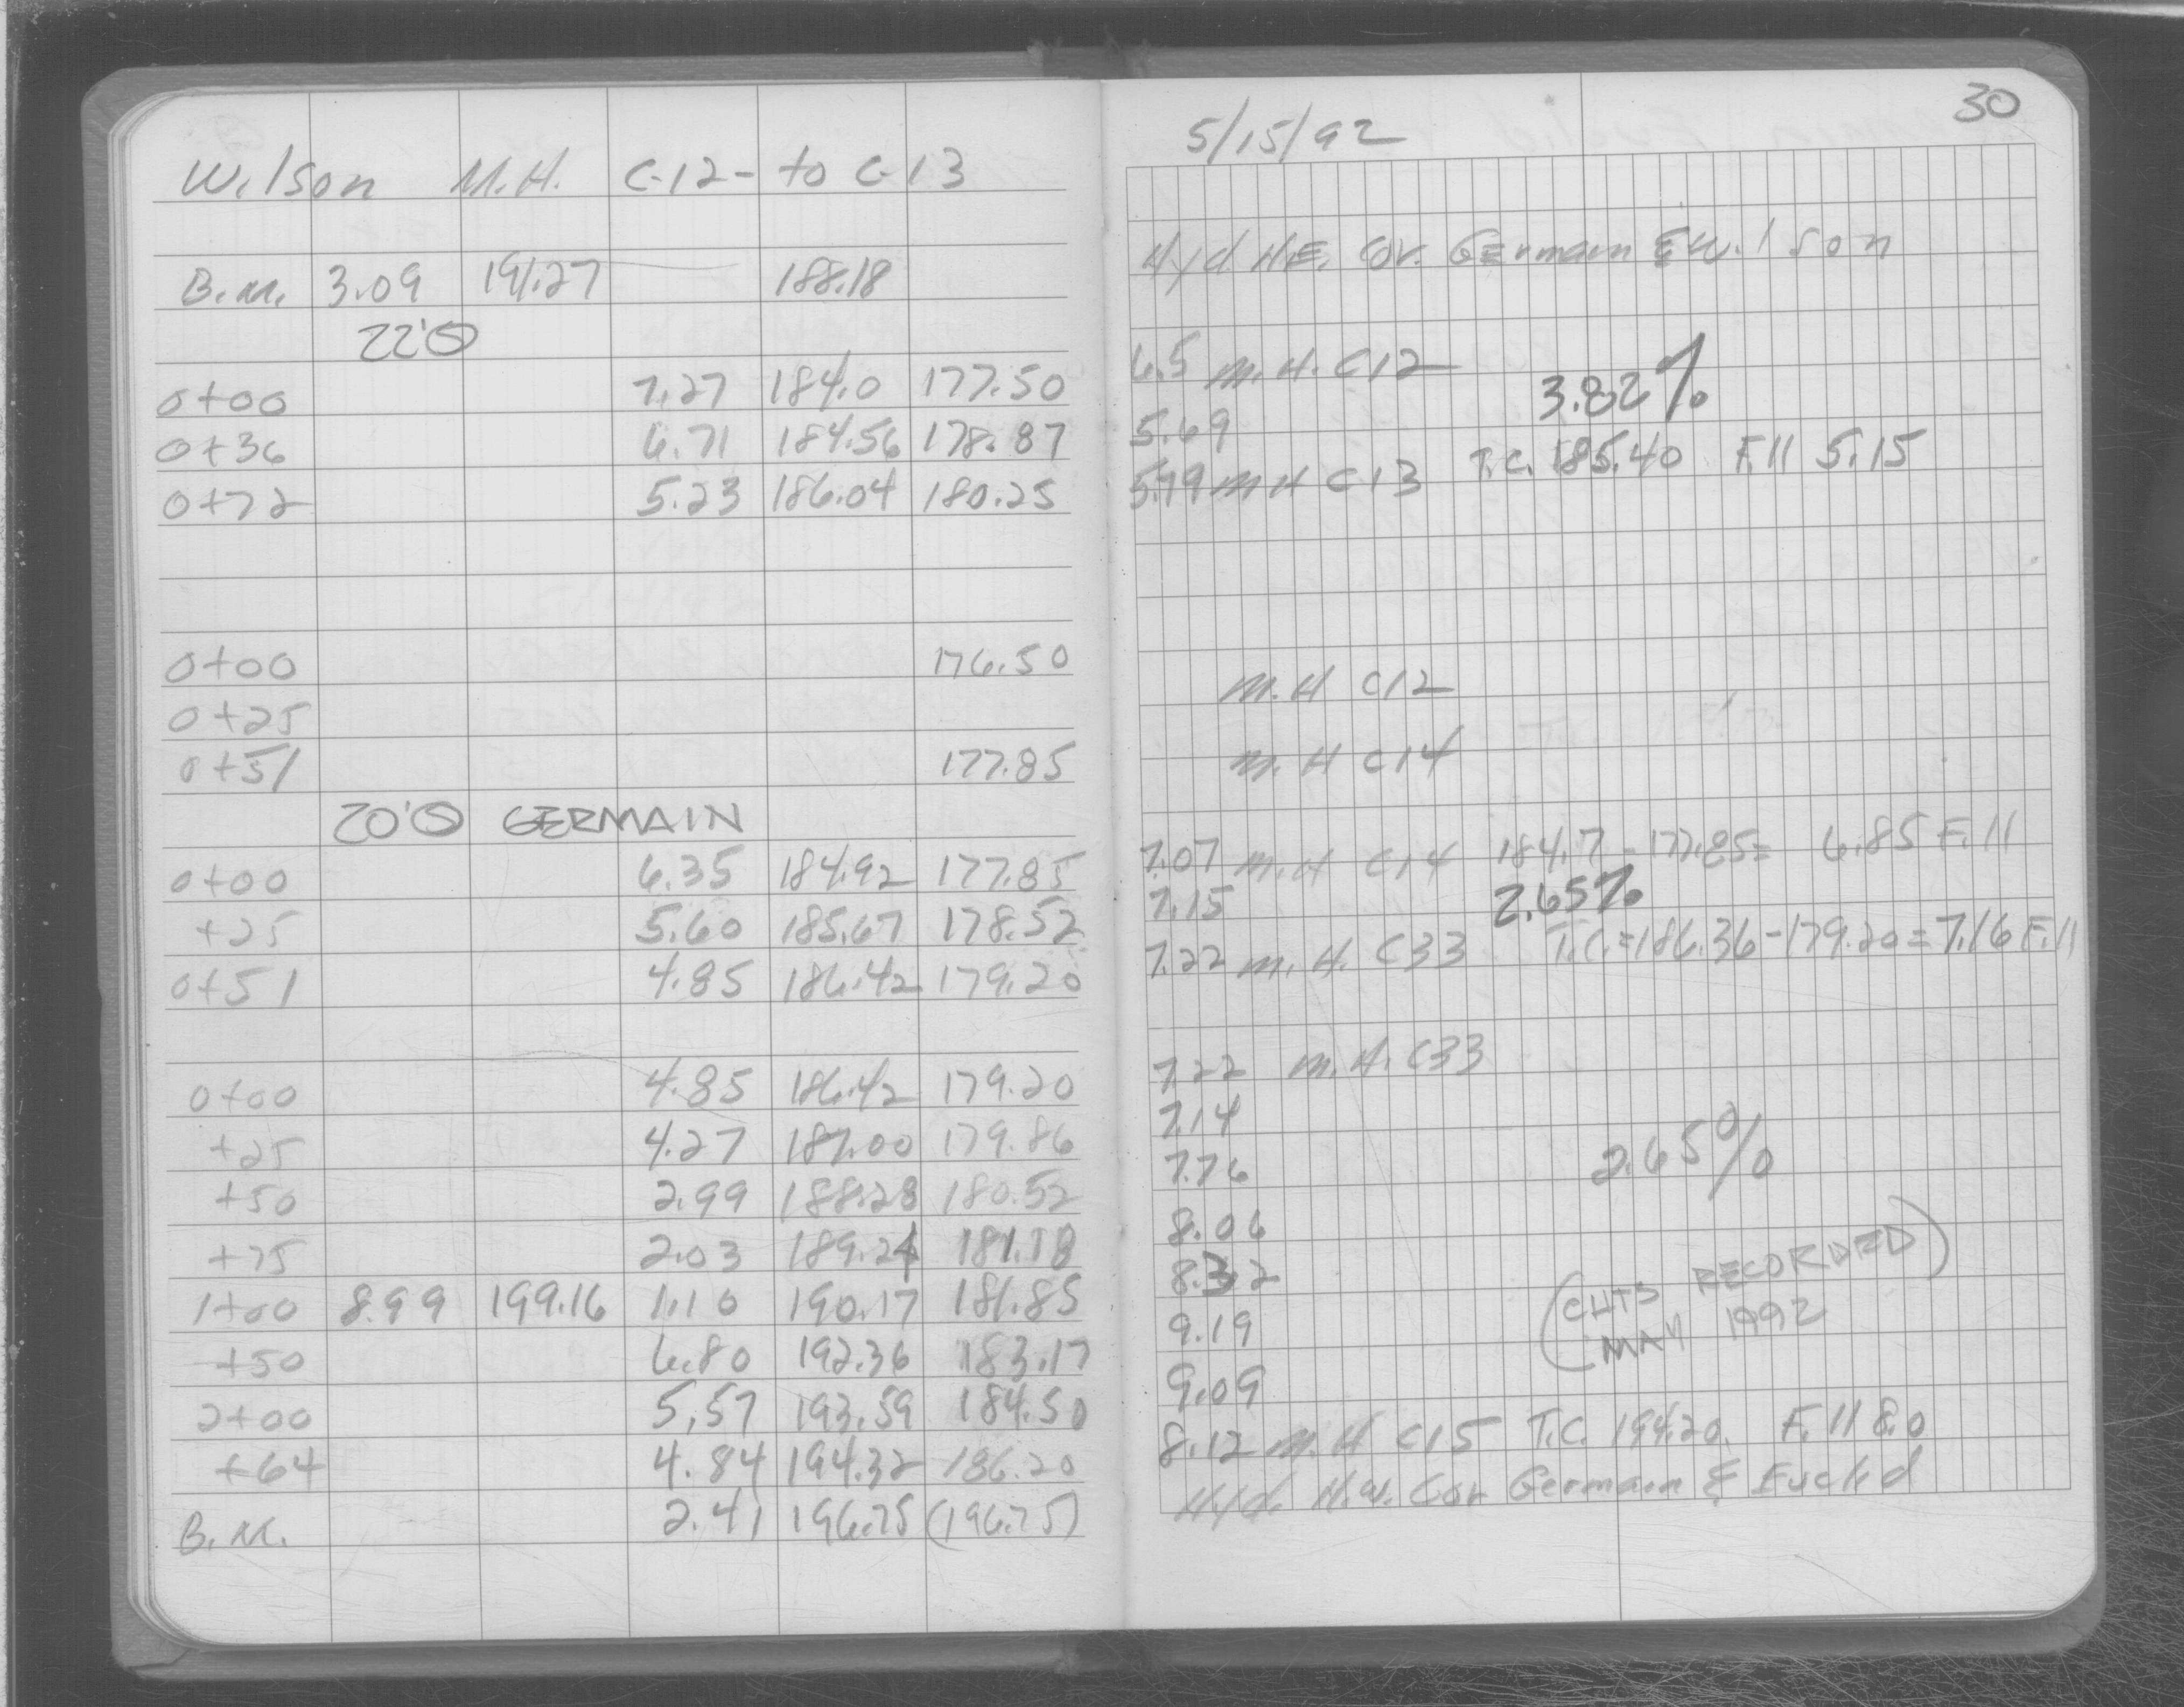 Wilson M.H. C-12- to C-13
B.M. 3.09 191.27 188.18
22'
0+00 7.27 184.0 177.50
0+36 6.71 184.56 178.87
0+72 5.23 186.04 180.25
0+00 176.50
0+25
0+51 177.85
20' GERMAIN
0+00 6.35 184.92 177.85
+25 5.60 185.67 178.52
0+51 4.85 186.42 179.20
0+00 4.85 186.42 179.20
+25 4.27 187.00 179.86
+50 2.99 188.28 180.52
+75 2.03 189.24 181.18
1+00 8.99 199.16 1.10 190.17 181.85
+50 6.80 192.36 183.17
2+00 5.57 193.59 184.50
+64 4.84 194.32 186.20
B.M. 2.41 196.75 (196.75)
30
5/15/92
Hyd N.E. Cor. Germain & Wilson
6.5 M.H. C12
3.82%
5.69
5.79 M H C13 T.C. 185.40 Fill 5.15
M.H C12
M.H C14
7.07 M.H C14 184.7 - 177.85 = 6.85 Fill
7.15 2.65%
7.22 M.H. C33 T.C. = 186.36 - 179.20 = 7.16 Fill
7.22 M.H. C33
7.14
7.76 2.65%
8.06
8.32
(CUTS RECORDED
MAY 1992)
9.19
9.09
8.12 M.H C15 T.C. 194.20. Fill 8.0
Hyd. N.W. Cor Germain & Euclid